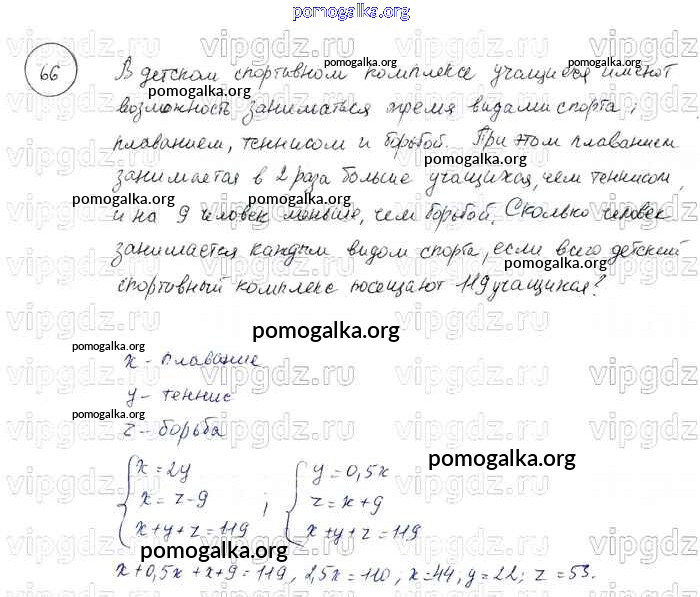 pomogalka.org
66 В детском спортивном комплексе учащиеся имеют
возможность заниматься тремя видами спорта:
плаванием, теннисом и борьбой. При этом плаванием
занимается в 2 раза больше учащихся, чем теннисом,
и на 9 человек меньше, чем борьбой. Сколько человек
занимается каждым видом спорта, если всего детский
спортивный комплекс посещают 119 учащихся?
pomogalka.org
x - плавание
y - теннис
z - борьба
pomogalka.org
x = 2y ; y = 0,5x
x = z - 9 z = x + 9
x + y + z = 119 x + y + z = 119
pomogalka.org
x + 0,5x + x + 9 = 119, 2,5x = 110; x = 44, y = 22; z = 53.
vipgdz.ru